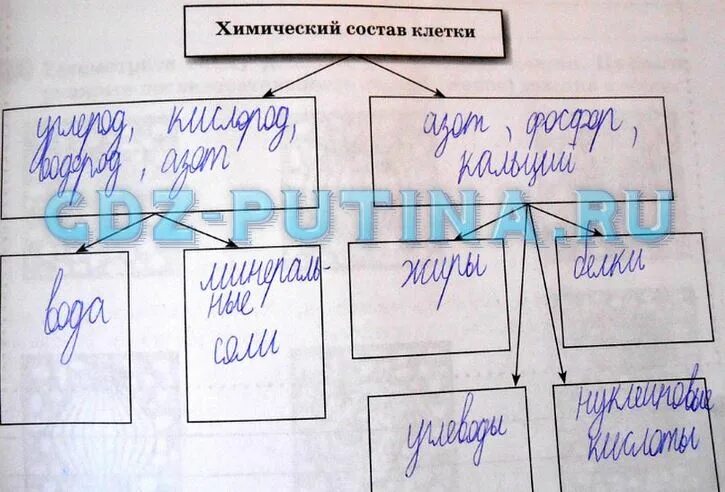 Химический состав клетки
углерод, кислород,
водород, азот
азот, фосфор,
кальций
GDZ-PUTINA.RU
вода
минераль-
ные
соли
жиры
белки
углеводы
нуклеиновые
кислоты